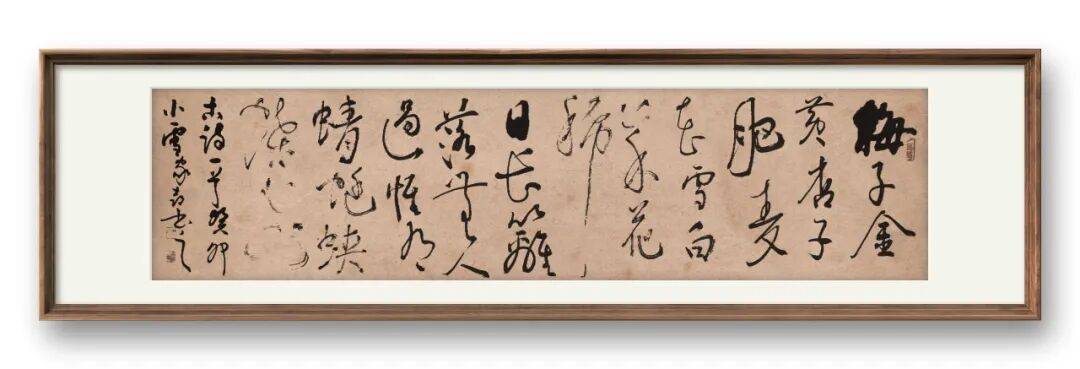 梅子金
黄杏子
肥麦
花雪白
菜花
稀
日长籬
落無人
過惟有
蜻蜓蛱
蝶飞
古诗一首癸卯
小雪